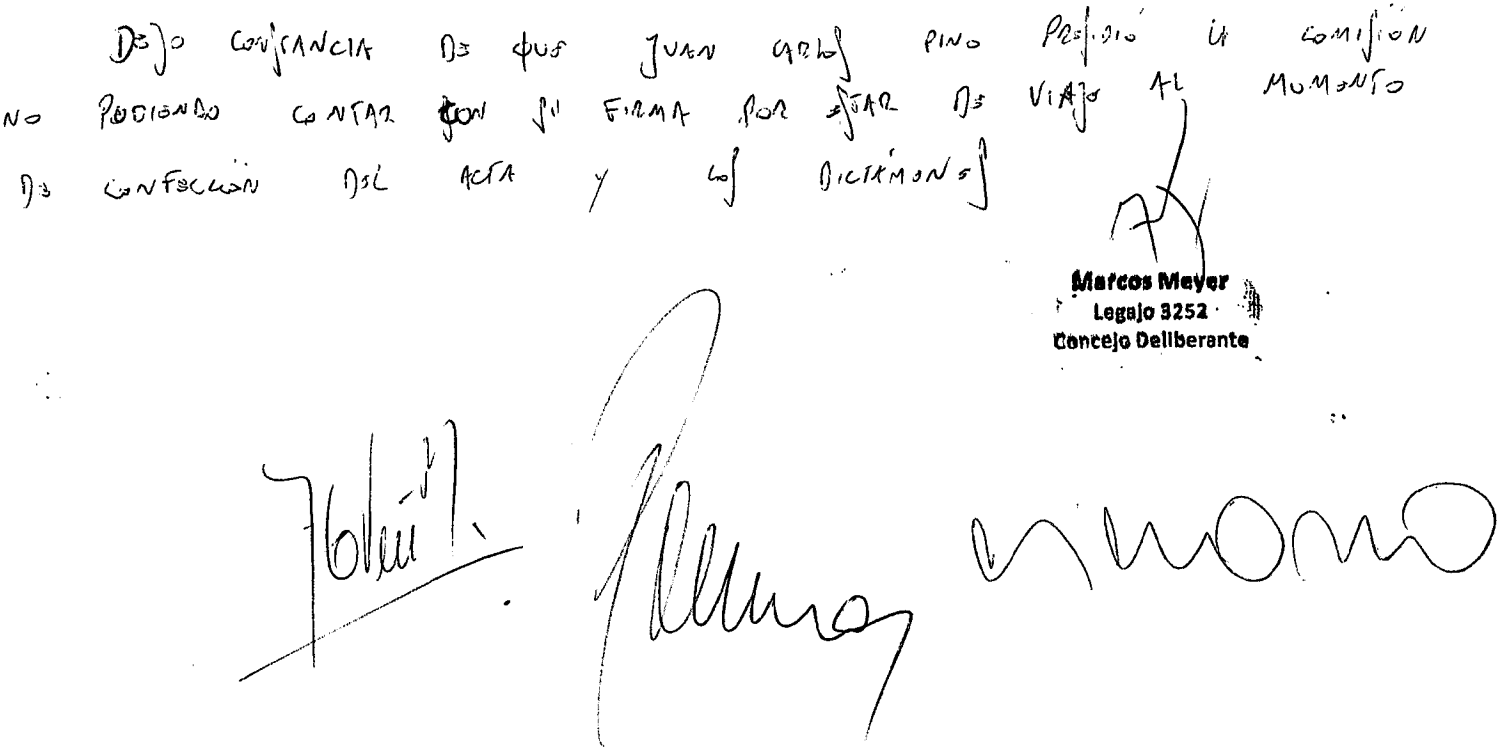 DEJO CONSTANCIA DE QUE JUAN CARLOS PINO PRESIDIÓ LA COMISIÓN
NO PUDIENDO CONTAR CON SU FIRMA POR ESTAR DE VIAJE AL MOMENTO
DE CONFECCIÓN DEL ACTA Y LOS DICTÁMENES
Marcos Meyer
Legajo 3252
Concejo Deliberante